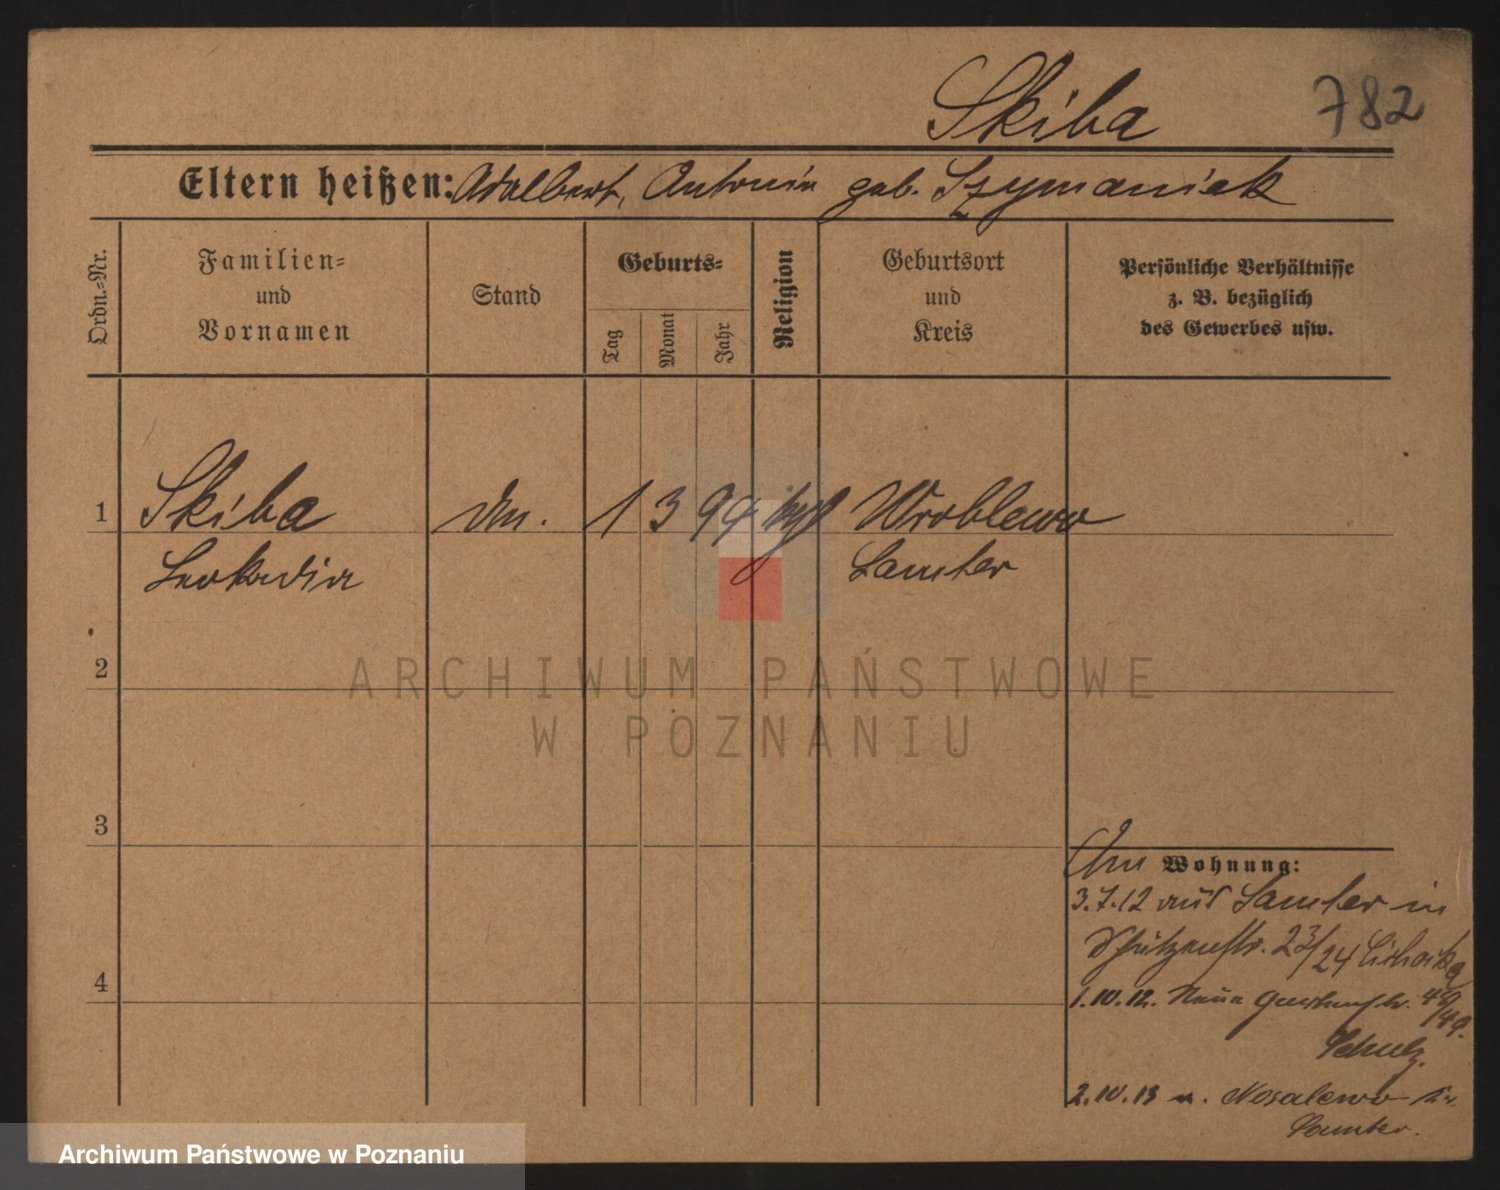 Skiba
782
Eltern heißen: Adalbert, Antonin geb. Szymaniak
Ordn.-Nr.
Familien-
und
Vornamen
Stand
Geburts-
Tag
Monat
Jahr
Religion
Geburtsort
und
Kreis
Persönliche Verhältnisse
z. B. bezüglich
des Gewerbes usw.
1
Skiba
1 3 94
Wroblewo
Leokadia
Samter
2
ARCHIWUM PAŃSTWOWE
W POZNANIU
3
Wohnung:
3.7.12 aus Samter in
Schützenstr. 23/24
4
1.10.12. Neue Gartenstr. 48/49.
Schulz.
2.10.13 n. Nosalewo Kr.
Samter.
Archiwum Państwowe w Poznaniu